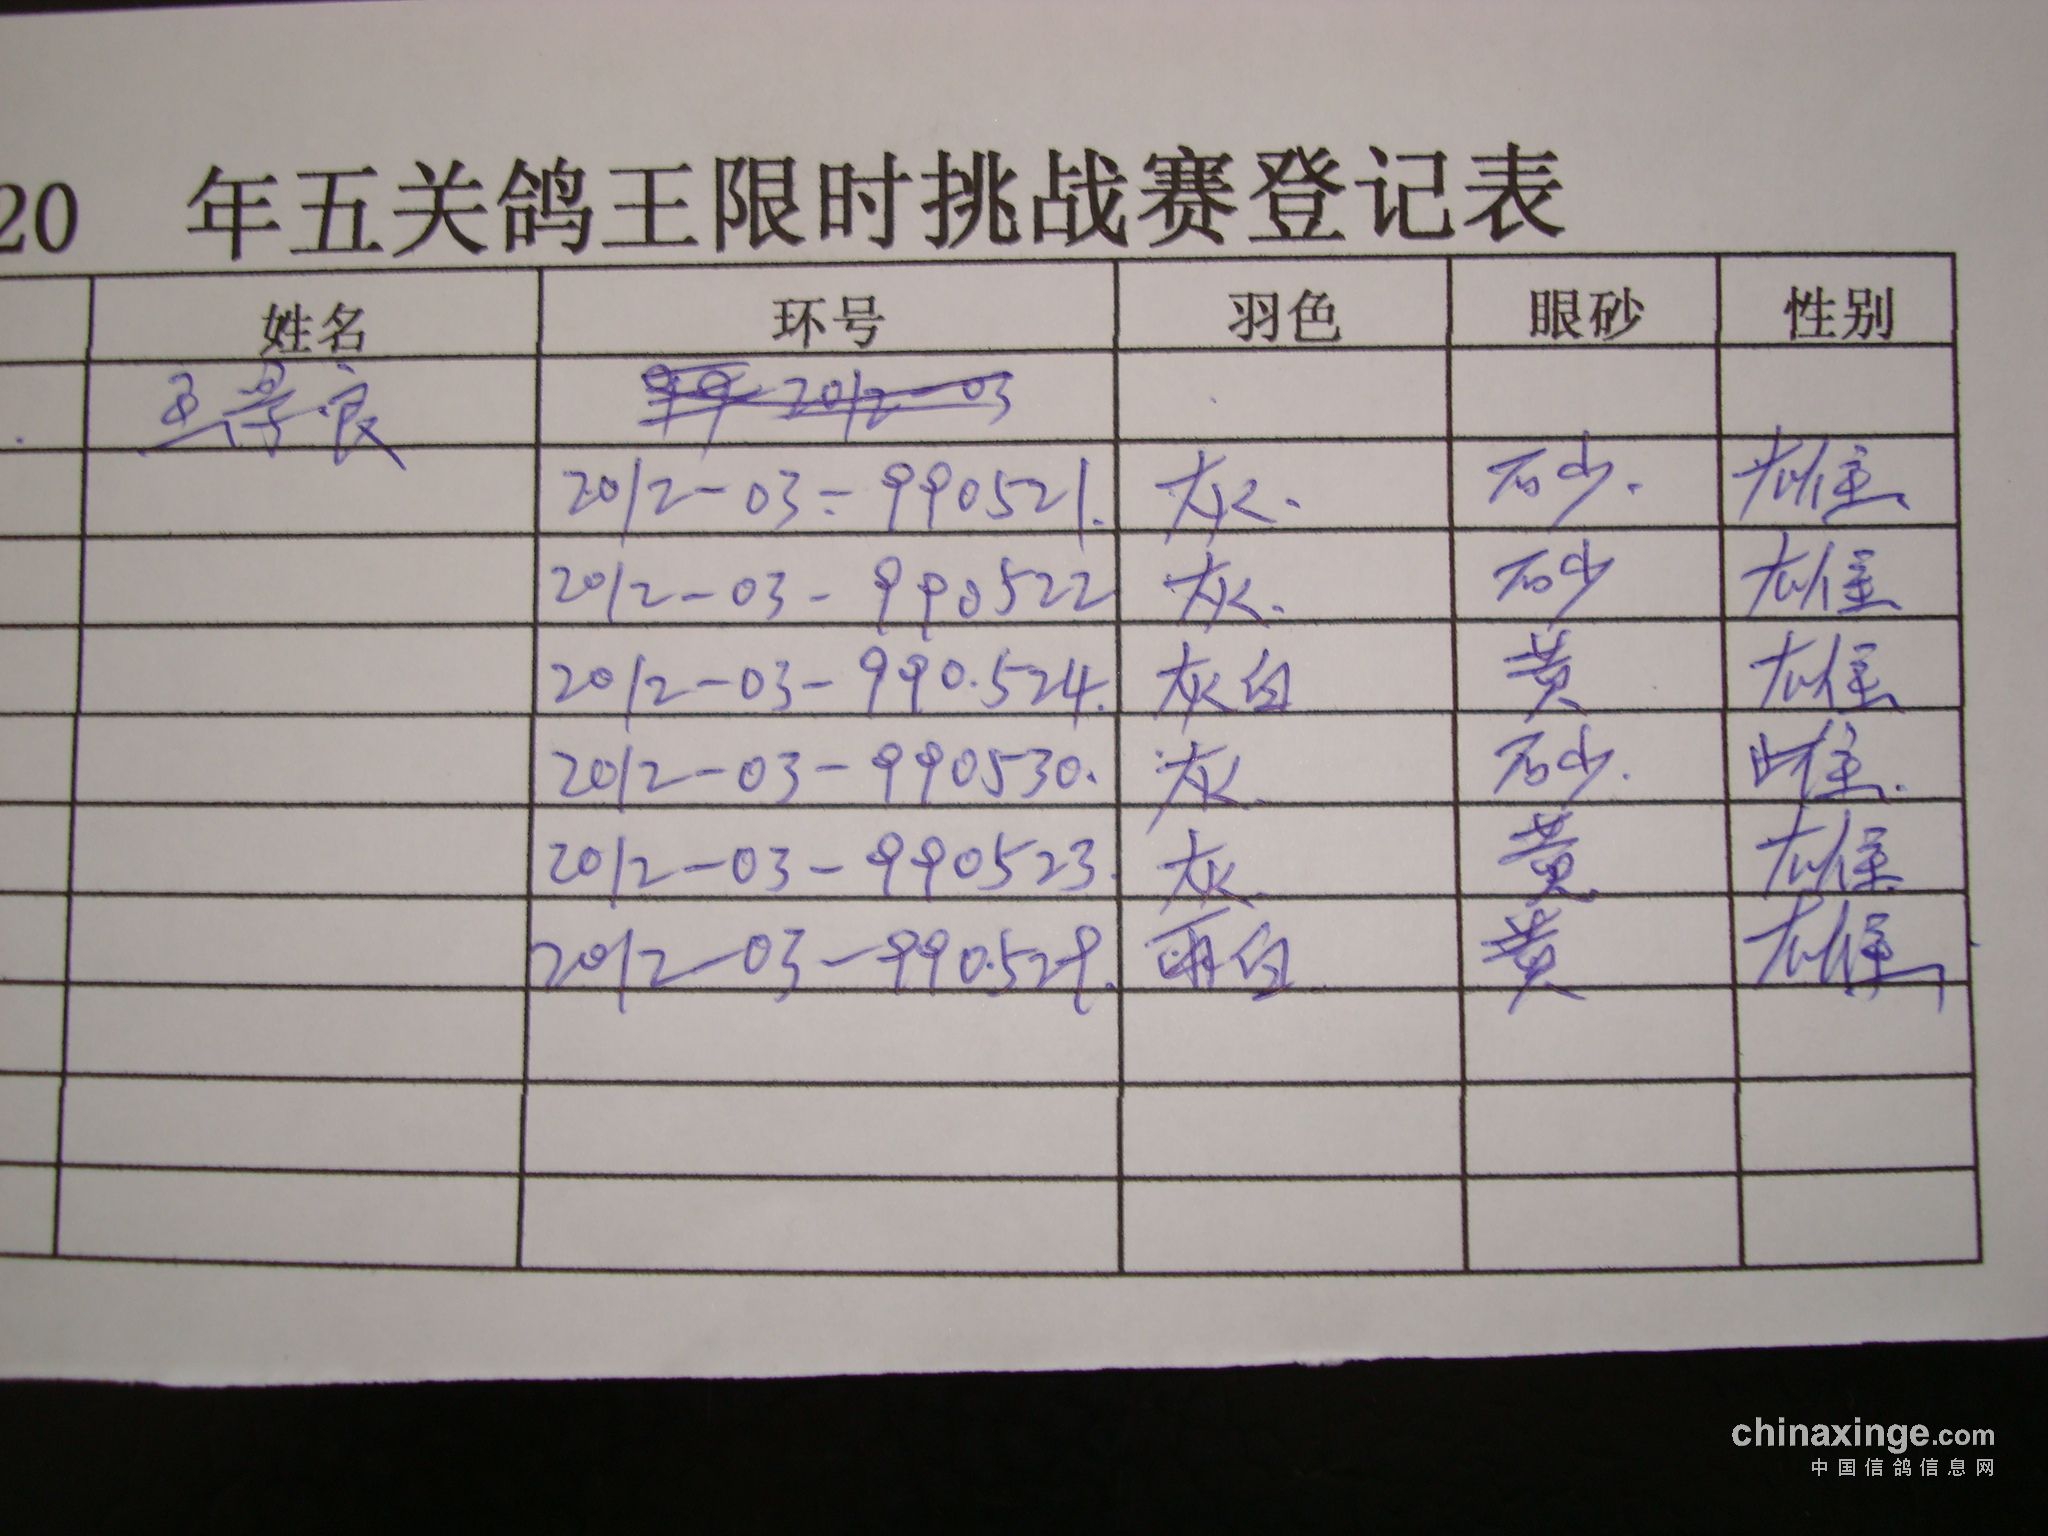 20 年五关鸽王限时挑战赛登记表
姓名 环号 羽色 眼砂 性别
王景良 99 2012-03
2012-03-990521. 灰. 石砂. 雄
2012-03-990522 灰. 石砂 雄
2012-03-990.524. 灰白 黄 雄
2012-03-990530. 灰. 石砂. 雌.
2012-03-990523. 灰. 黄 雄
2012-03-990.529. 雨白. 黄 雄
chinaxinge.com
中国信鸽信息网